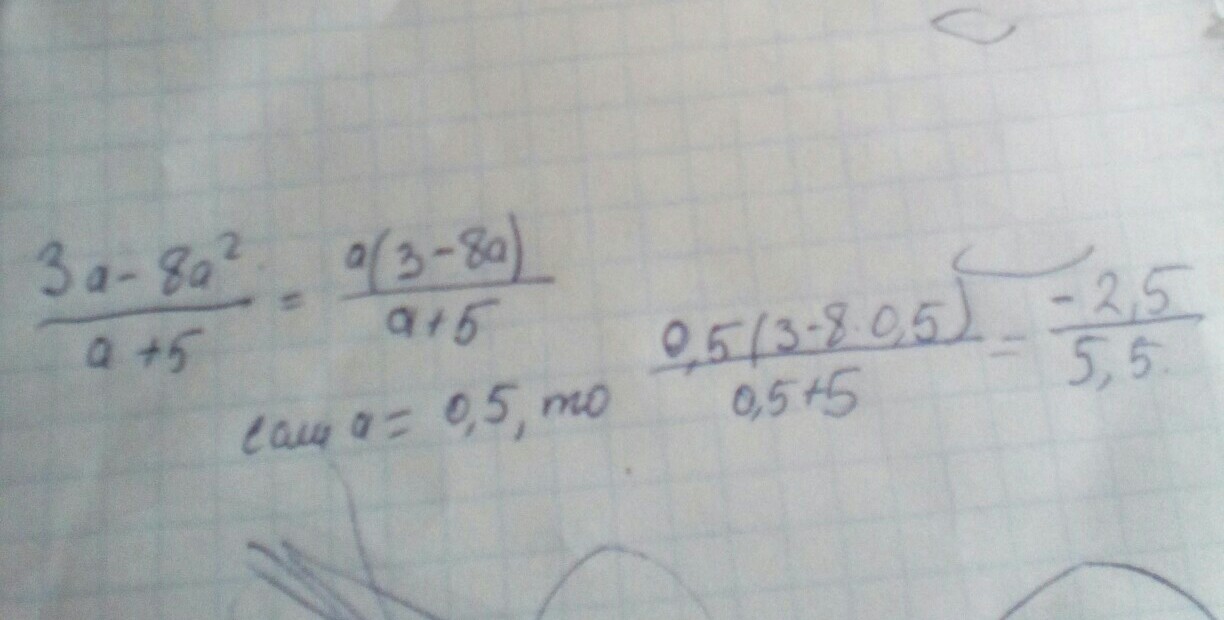 (3a - 8a²)/(a + 5) = a(3 - 8a)/(a + 5)
если a = 0,5, то 0,5(3 - 8·0,5)/(0,5 + 5) = -2,5/5,5